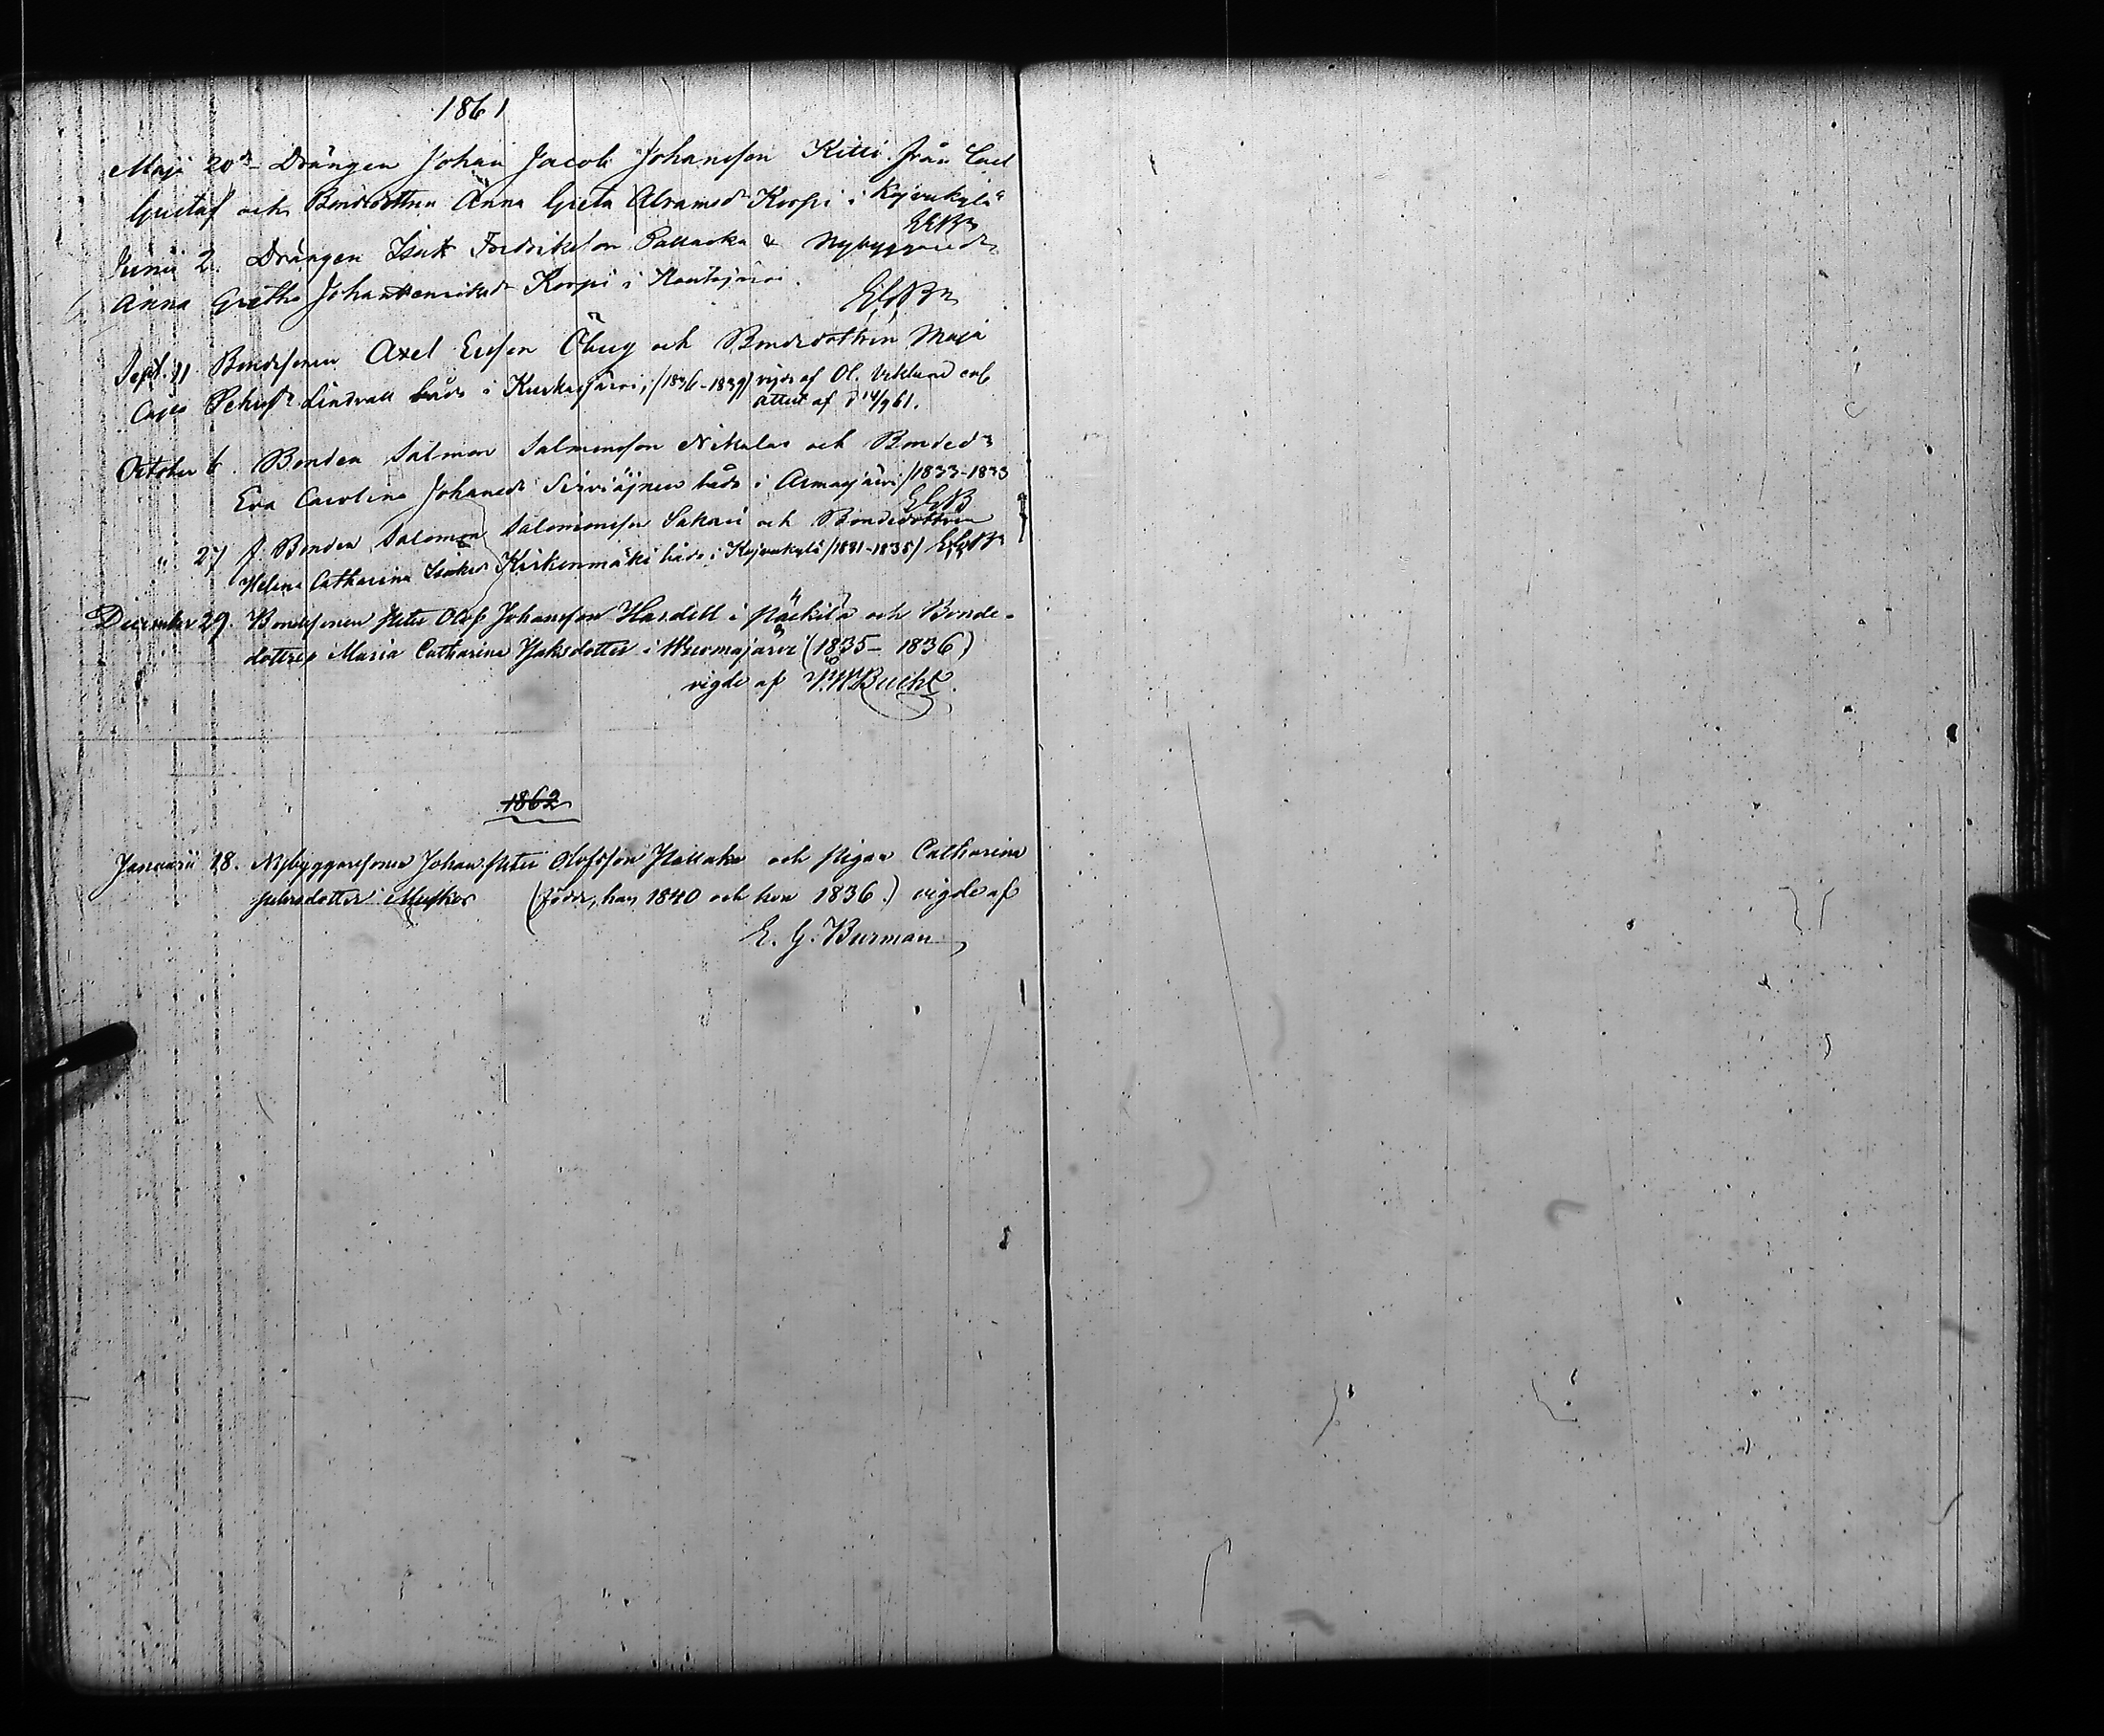 1861
Maji 20de Drängen Johan Jacob Johansson Kitti från Carl
Gustaf och Bondedottren Anna Greta Abramsdr Korpi i Kojvukylä
EGBn
Junii 2. Drängen Isak Fredriksson Pallacka & Nybyggaredr
Anna Gretha Johan Henriksdr Korpi i Rantajärvi.
EGBn
Sept. 11 Bondesonen Axel Ersson Öberg och Bondedottren Maja
Cajsa Lindvall både i Kuckasjärvi, (1836-1839) vigde af Ol. Viklund enl
attest af d 14/9 61.
October 6. Bonden Salmon Salmonsson Nikulas och Bondedr
Eva Carolina Johansdr både i Armasjärvi /1833-1833
EGB
" 27 f Bonden Salomon Salomonsson Sakari och Bondedottren
Helena Catharina Isaksdr Kirkenmäki både i Kojvukylä /1831-1835/ EGBn
December 29. Bondesonen Peter Olof Johansson Hardell i Päckilä och Bonde-
dottren Maria Catharina Isaksdotter i (1835 - 1836)
vigde af P.W Bucht.
1862
Januarii 18. Nybyggaresonen Johan Peter Olofsson Pallaka och Pigan Catharina
Petersdotter (födde, han 1840 och hon 1836.) vigde af
E. G. Burman